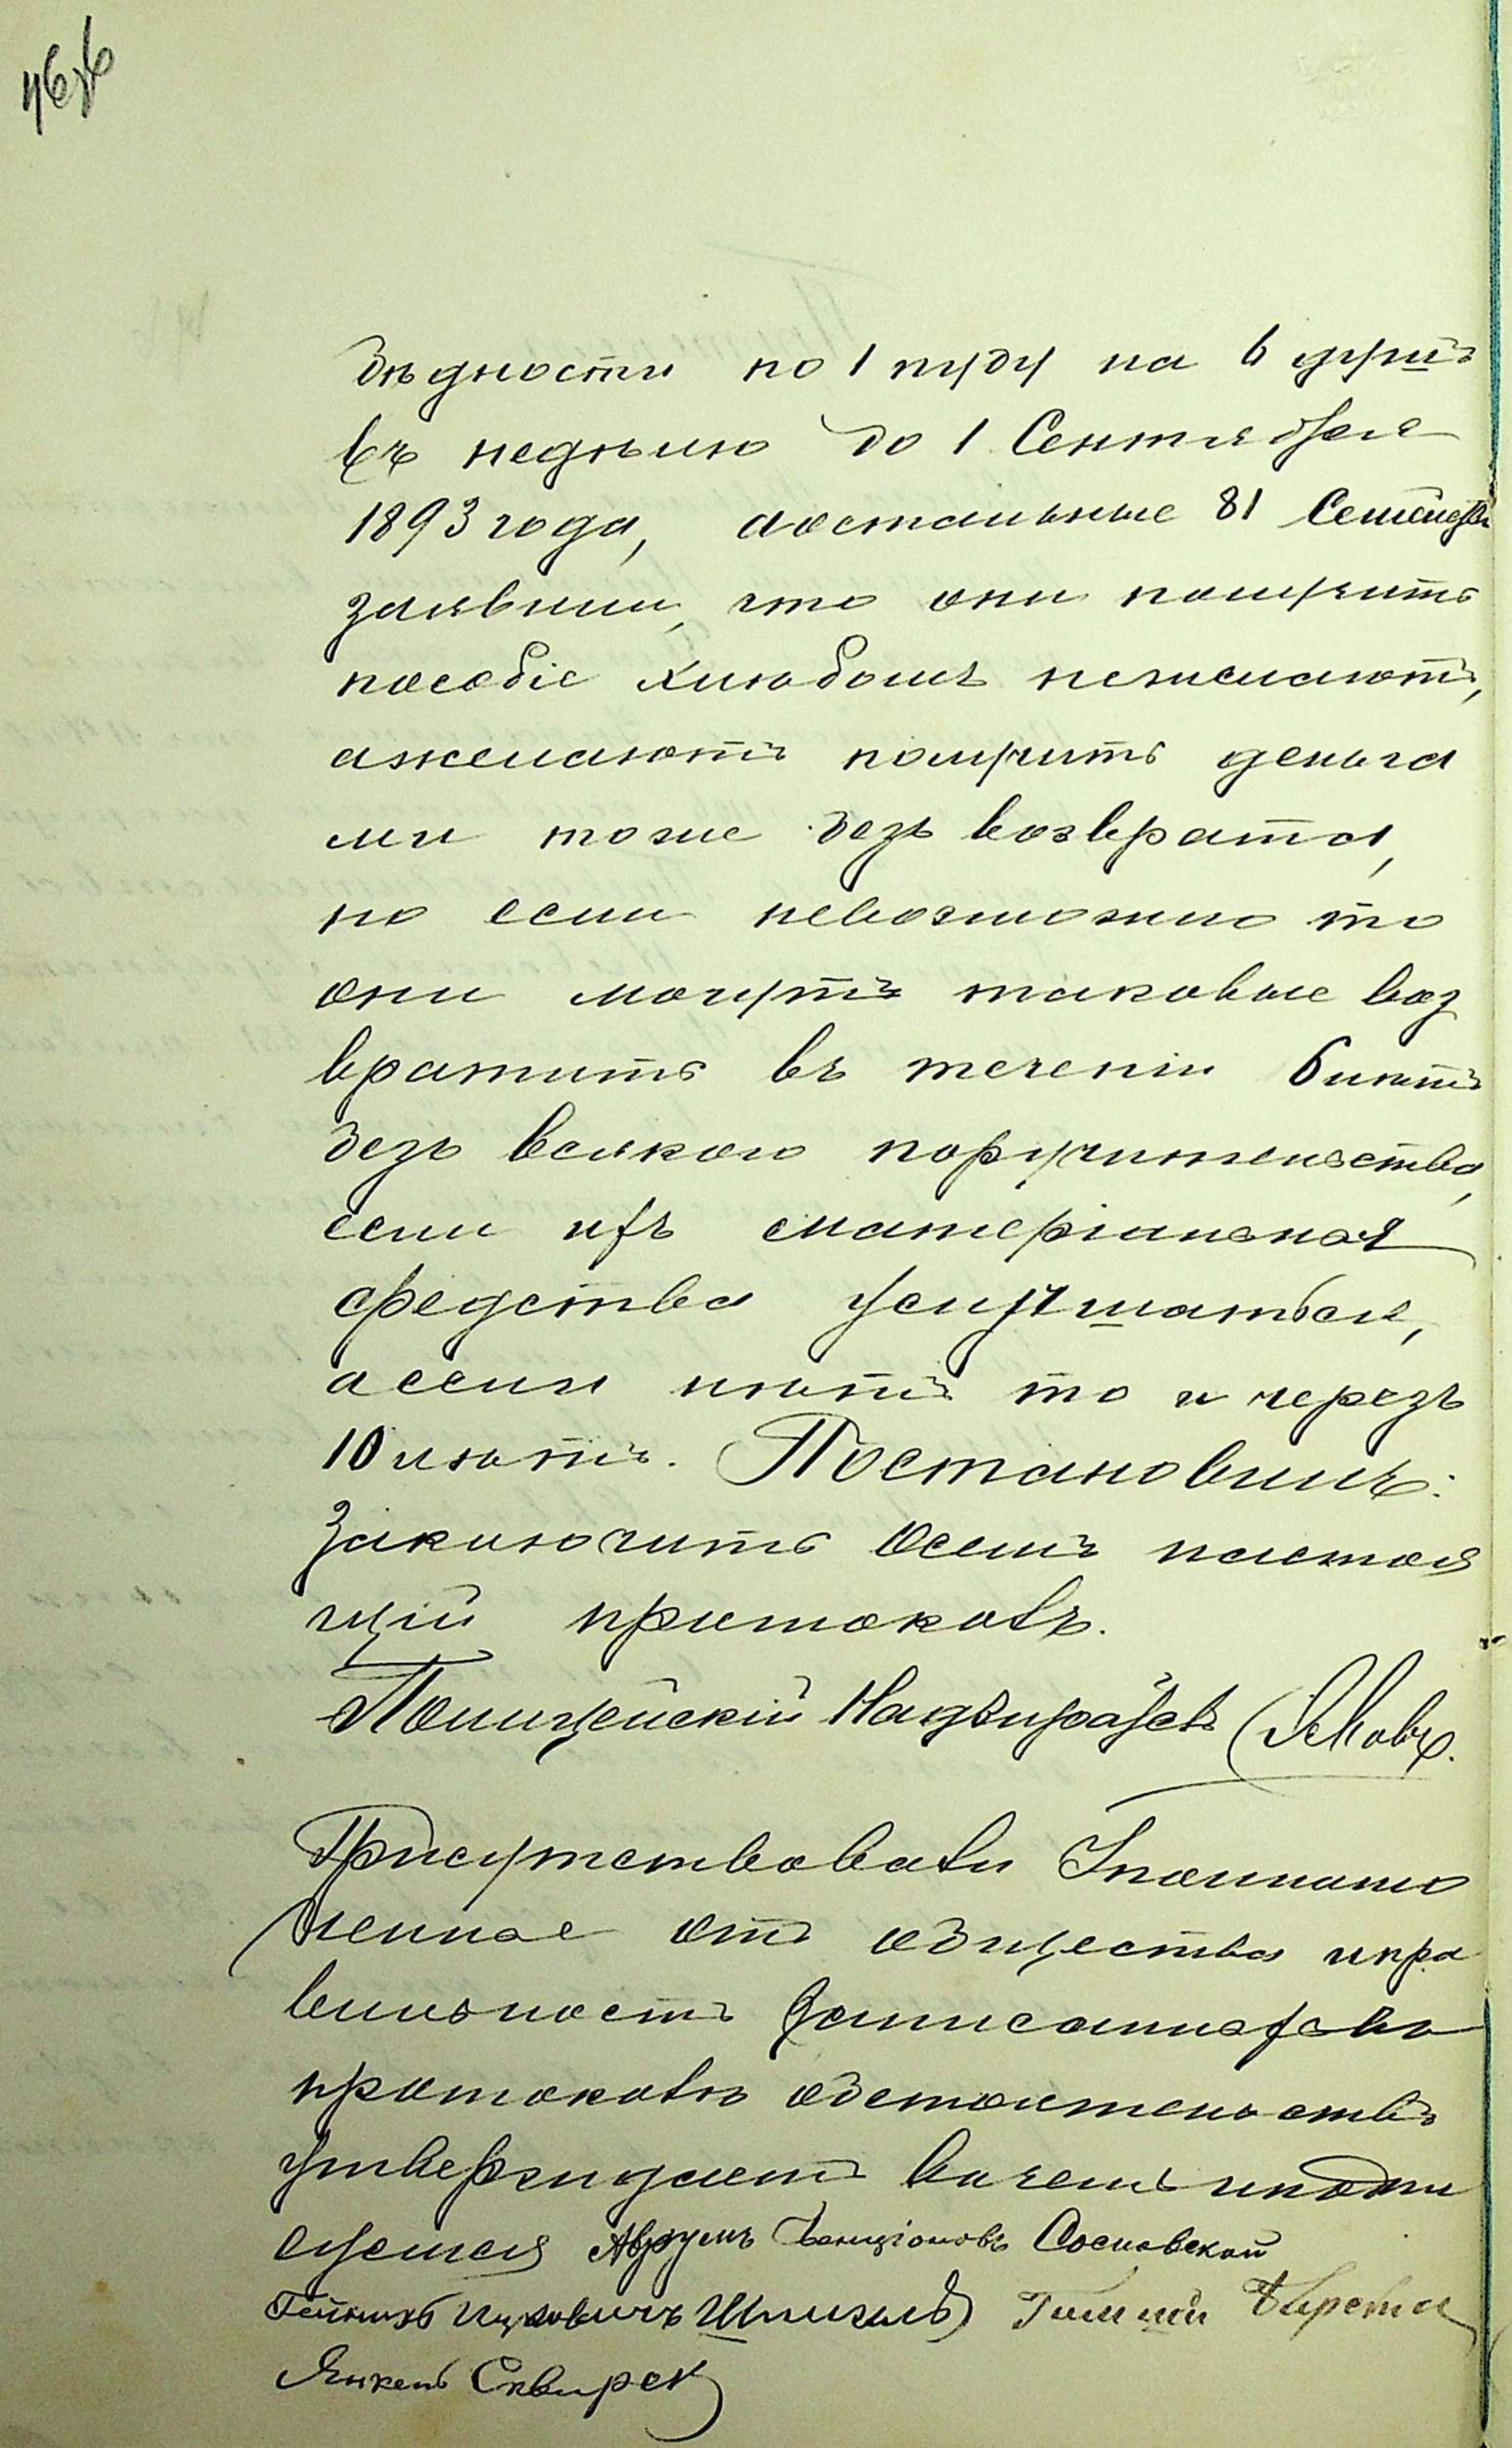 бѣдности по 1 пуду на 6 душъ
въ недѣлю до 1 Сентября
1893 года, аостальные 81 Семейства
заявили, что они получить
пособіе хлѣбомъ нежелаютъ,
ажелаютъ получить деньга
ми тоже безъ возврата,
но если невозможно то
они могутъ таковые воз
вратить въ теченіи 6 лѣтъ
безъ всякого поручительства,
если ихъ матеріальная
средства улучшаться,
аесли нѣтъ то и черезъ
10 лѣтъ. Постановилъ:
Заключить осемъ настоя
щій протоколъ.
Полицейскій Надзиратель
Присутствовали Уполномо
ченные отъ общества ипра
вильность записанныхъ въ
протоколѣ обстоятельствъ
утверждаетъ вчемъ иподпи
суемся Аврумъ Бенціоновъ Сосновской
Ицковичъ Шпигель
Янкель Сквирск